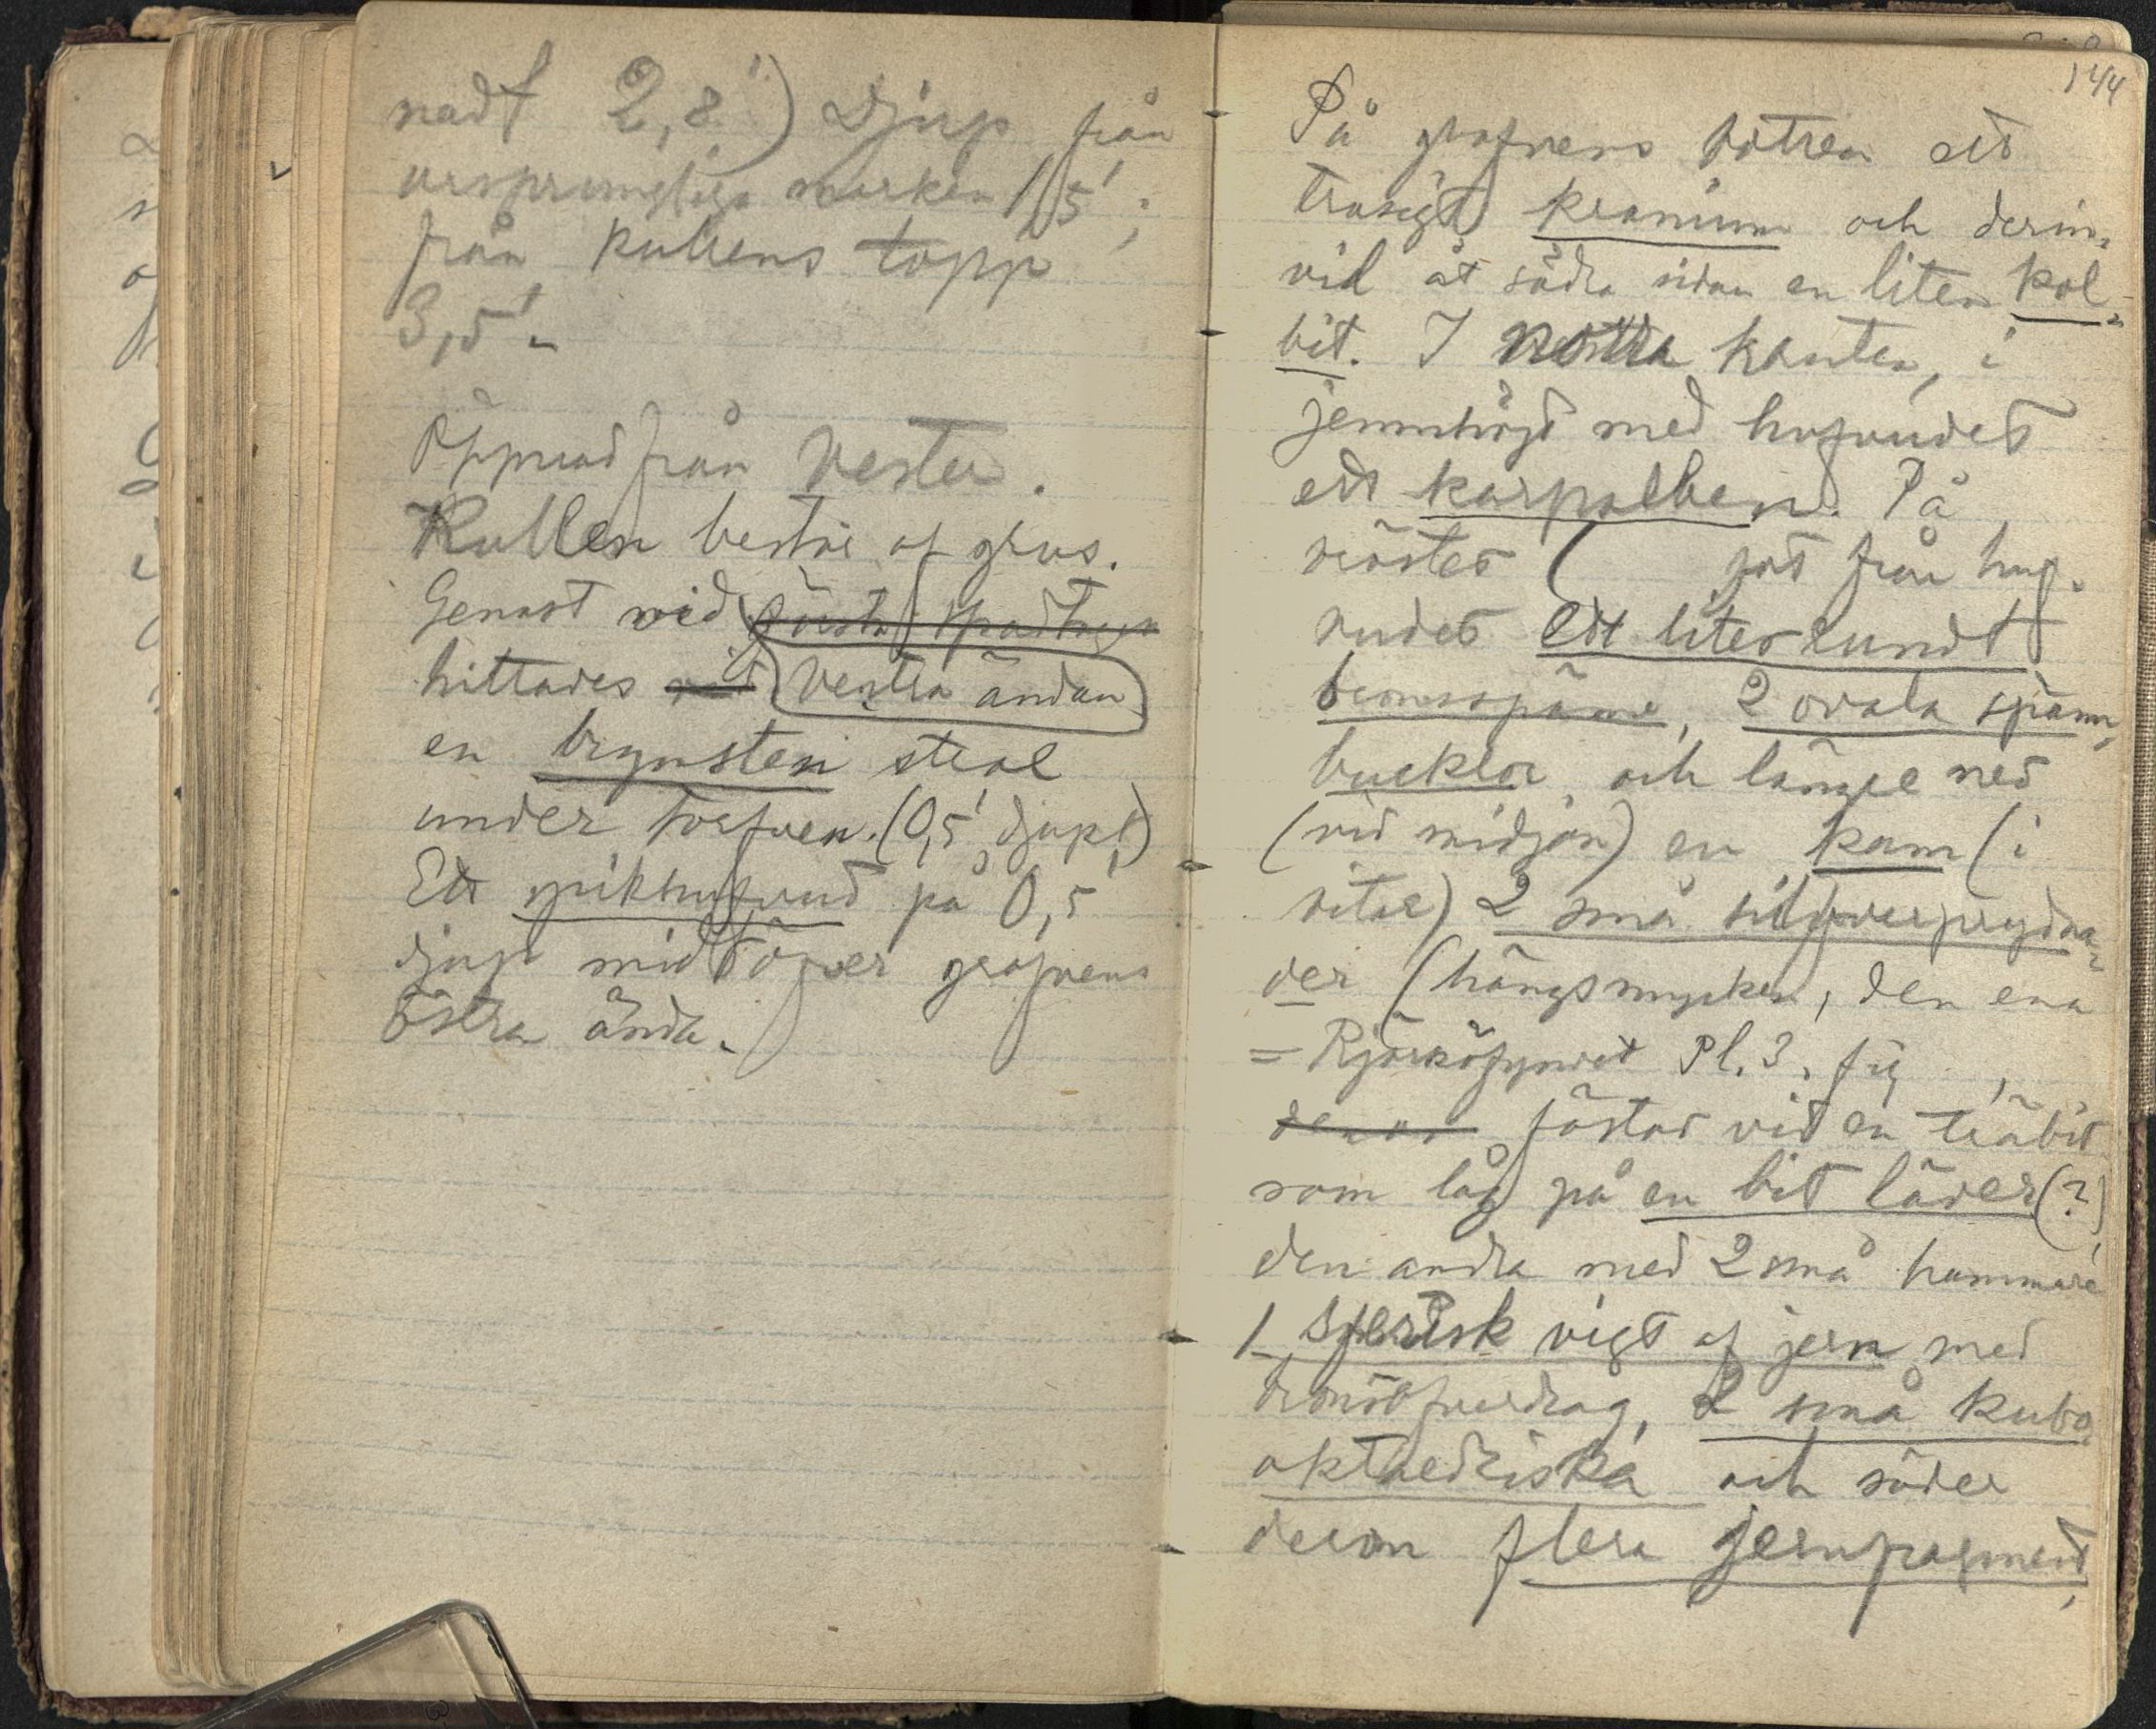 nadt 2,8') Djup från
ursprungliga marken 1,5';
från kullens topp
3,5'.
Öppnad från vester.
Kullen består af grus.
Genast vid första spadtagen
hittades vid vestra ändan
en brynsten strax
under torfven. (0,5' djupt)
Ett spikhufvud på 0,5'
djup midt öfver grafvens
östra ända.
144
På grafvens botten ett
trasigt kranium och derin-
vid åt södra sidan en liten kol-
bit. I norra kanten, i
jemnhöjd med hufvudet
ett karpalben. På
bröstet ( fot från huf-
vudet ett litet rundt
bronsspänne, 2 ovala spänn-
bucklor och längre ned
(vid midjan) en kam (i
bitar) 2 små silfverpryda-
der (hängsmycken, den ena
= Björköfyndet Pl. 3, fig ,
fästad vid en träbit
som låg på en bit läder (?)
den andra med 2 små hammare
1 sferisk vigt af jern med
bronsöfverdrag, 2 små kubo-
oktaedriska och söder
derom flera jernfragment,